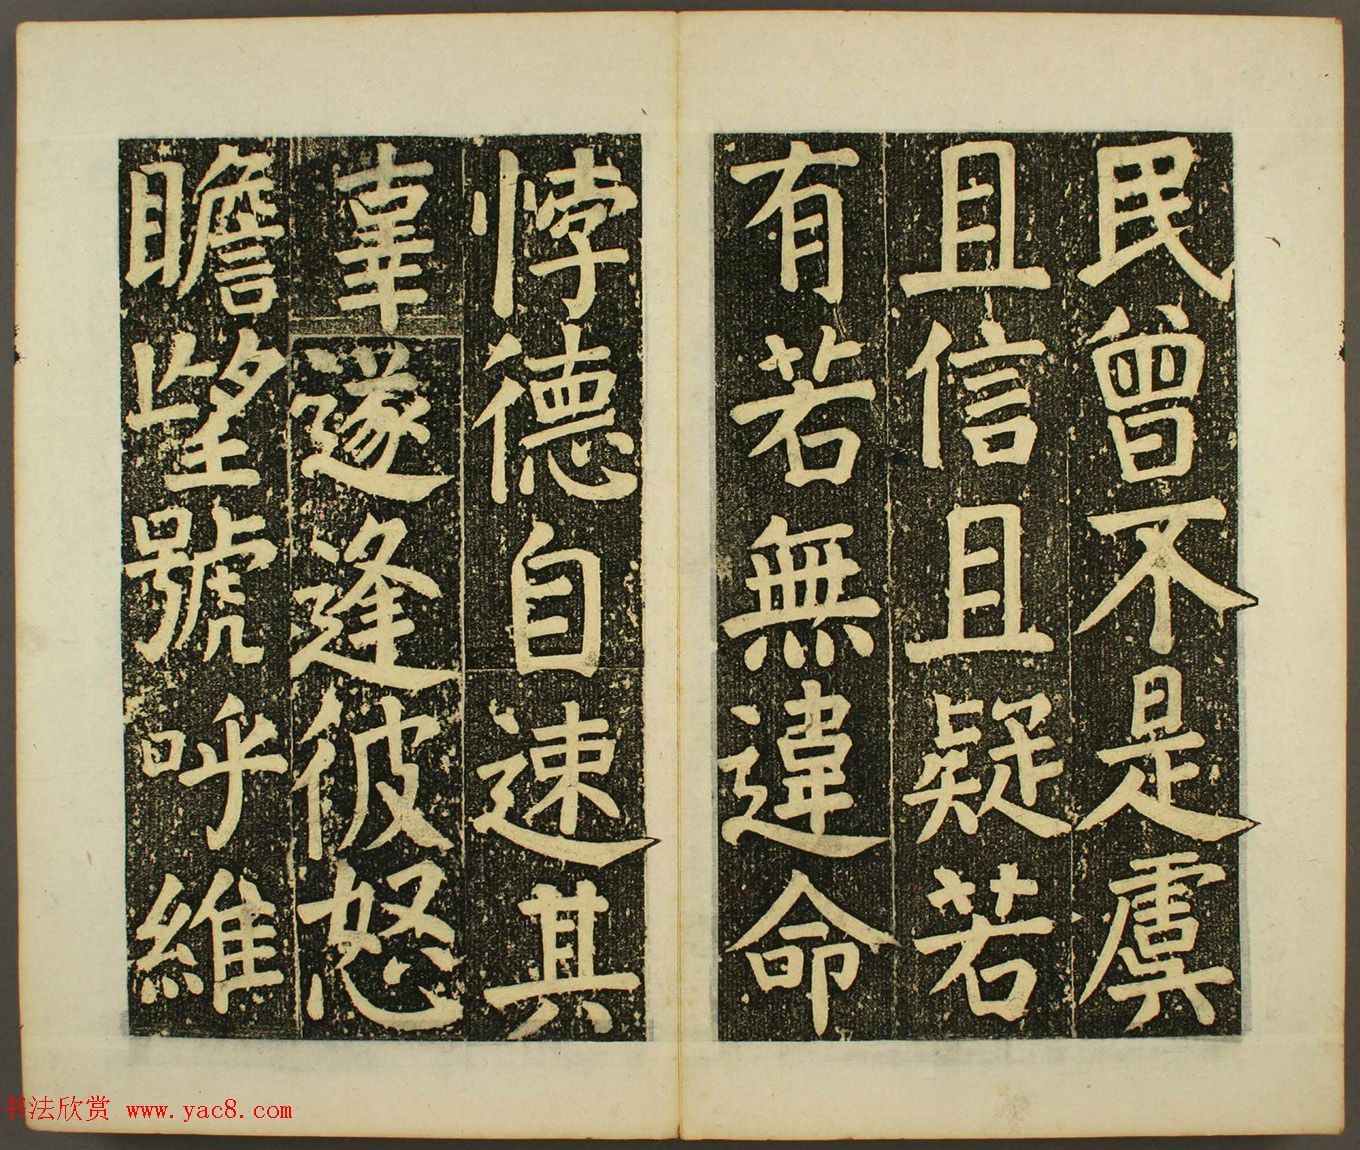 民曾不是虞
且信且疑若
有若無違命
悖德自速其
辜遂逢彼怒
瞻望號呼維
书法欣赏 www.yac8.com